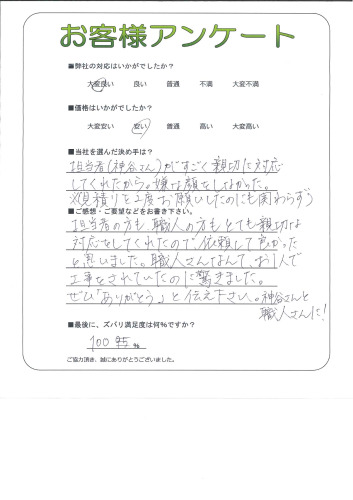 お客様アンケート
■弊社の対応はいかがでしたか？
大変良い 良い 普通 不満 大変不満
■価格はいかがでしたか？
大変安い 安い 普通 高い 大変高い
■当社を選んだ決め手は？
担当者(神谷さん)がすごく親切に対応
してくれたから。嫌な顔をしなかった。
※(見積りを2度お願いしたのにも関わらず)
■ご感想・ご要望などをお書き下さい。
担当者の方も、職人の方もとても親切な
対応をしてくれたので依頼して良かった
と思いました。職人さんなんて、お1人で
工事をされていたのに驚きました。
ぜひ「ありがとう」と伝え下さい。神谷さんと
職人さんに!
■最後に、ズバリ満足度は何%ですか？
100 %
ご協力頂き、誠にありがとうございました。